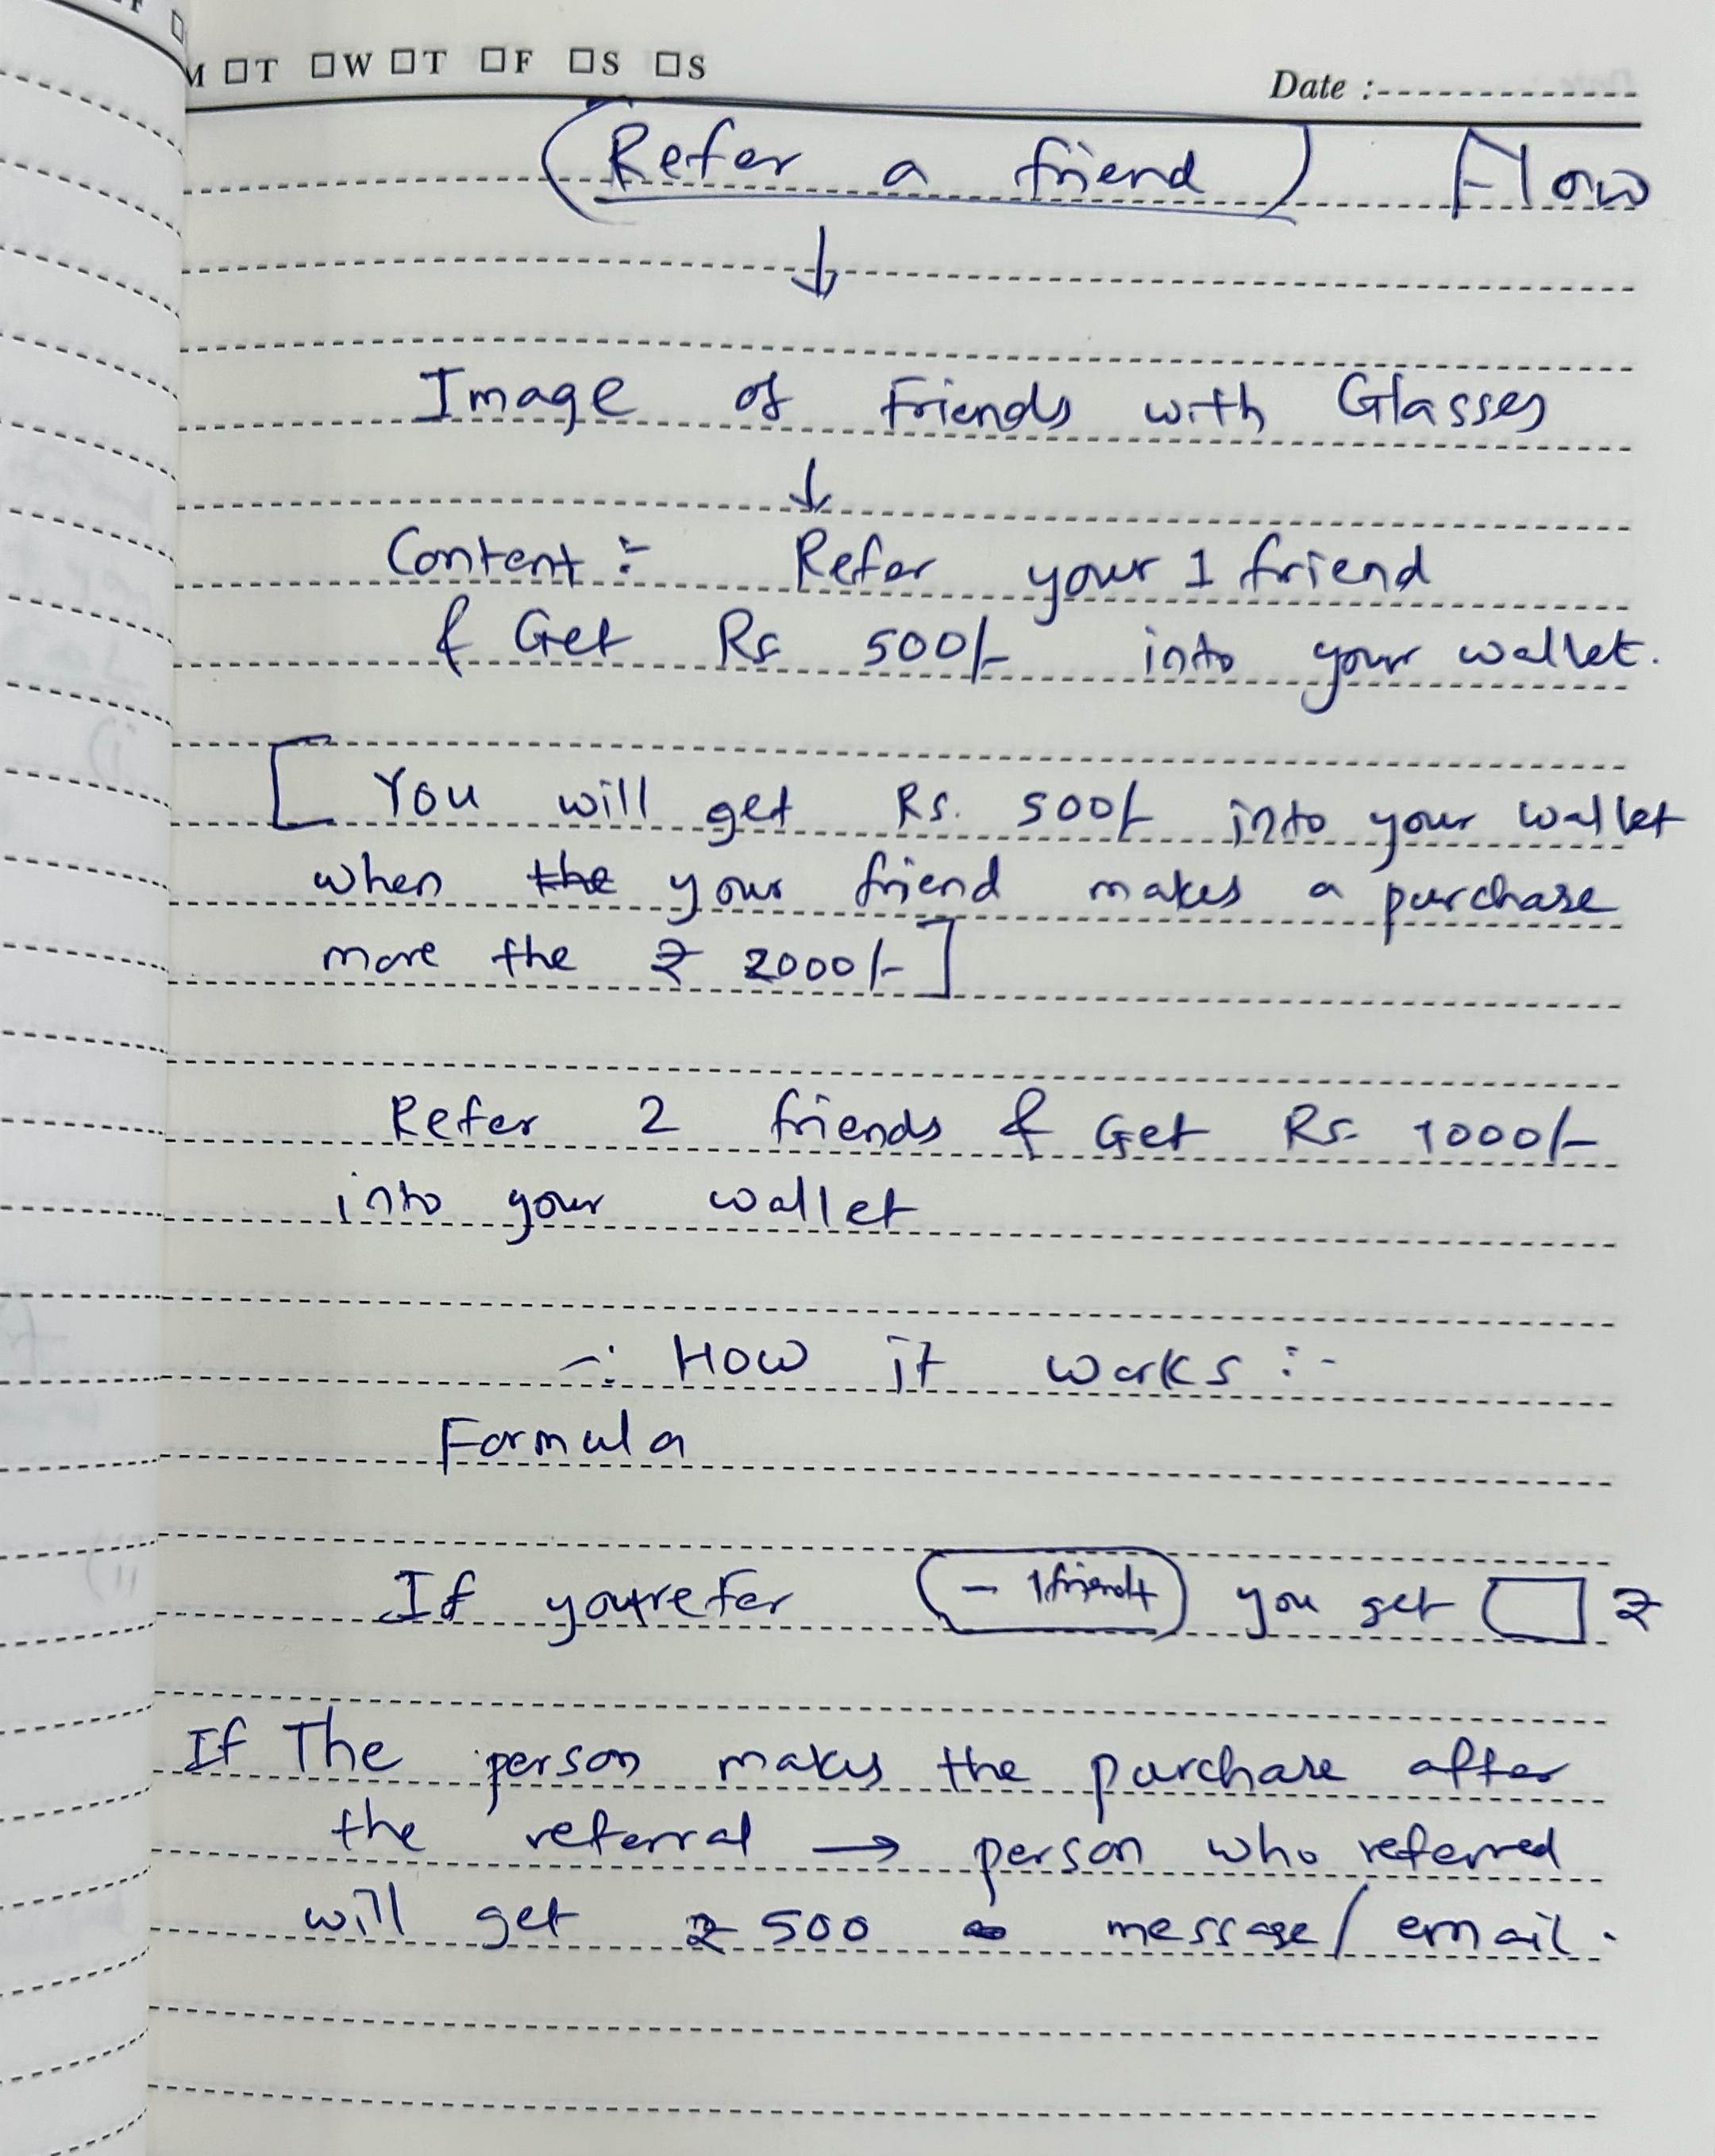 M □T □W □T □F □S □S
Date :
(Refer a friend) Flow
↓
Image of friends with Glasses
↓
Content :- Refer your 1 friend
& Get Rs 500/- into your wallet.
[ You will get Rs. 500/- into your wallet
when the your friend makes a purchase
more the ₹ 2000/- ]
Refer 2 friends & Get Rs. 1000/-
into your wallet
-: How it works :-
Formula
If you refer - 1 friend + you get □ ₹
If The person makes the purchase after
the referral → person who referred
will get ₹ 500 message / email.